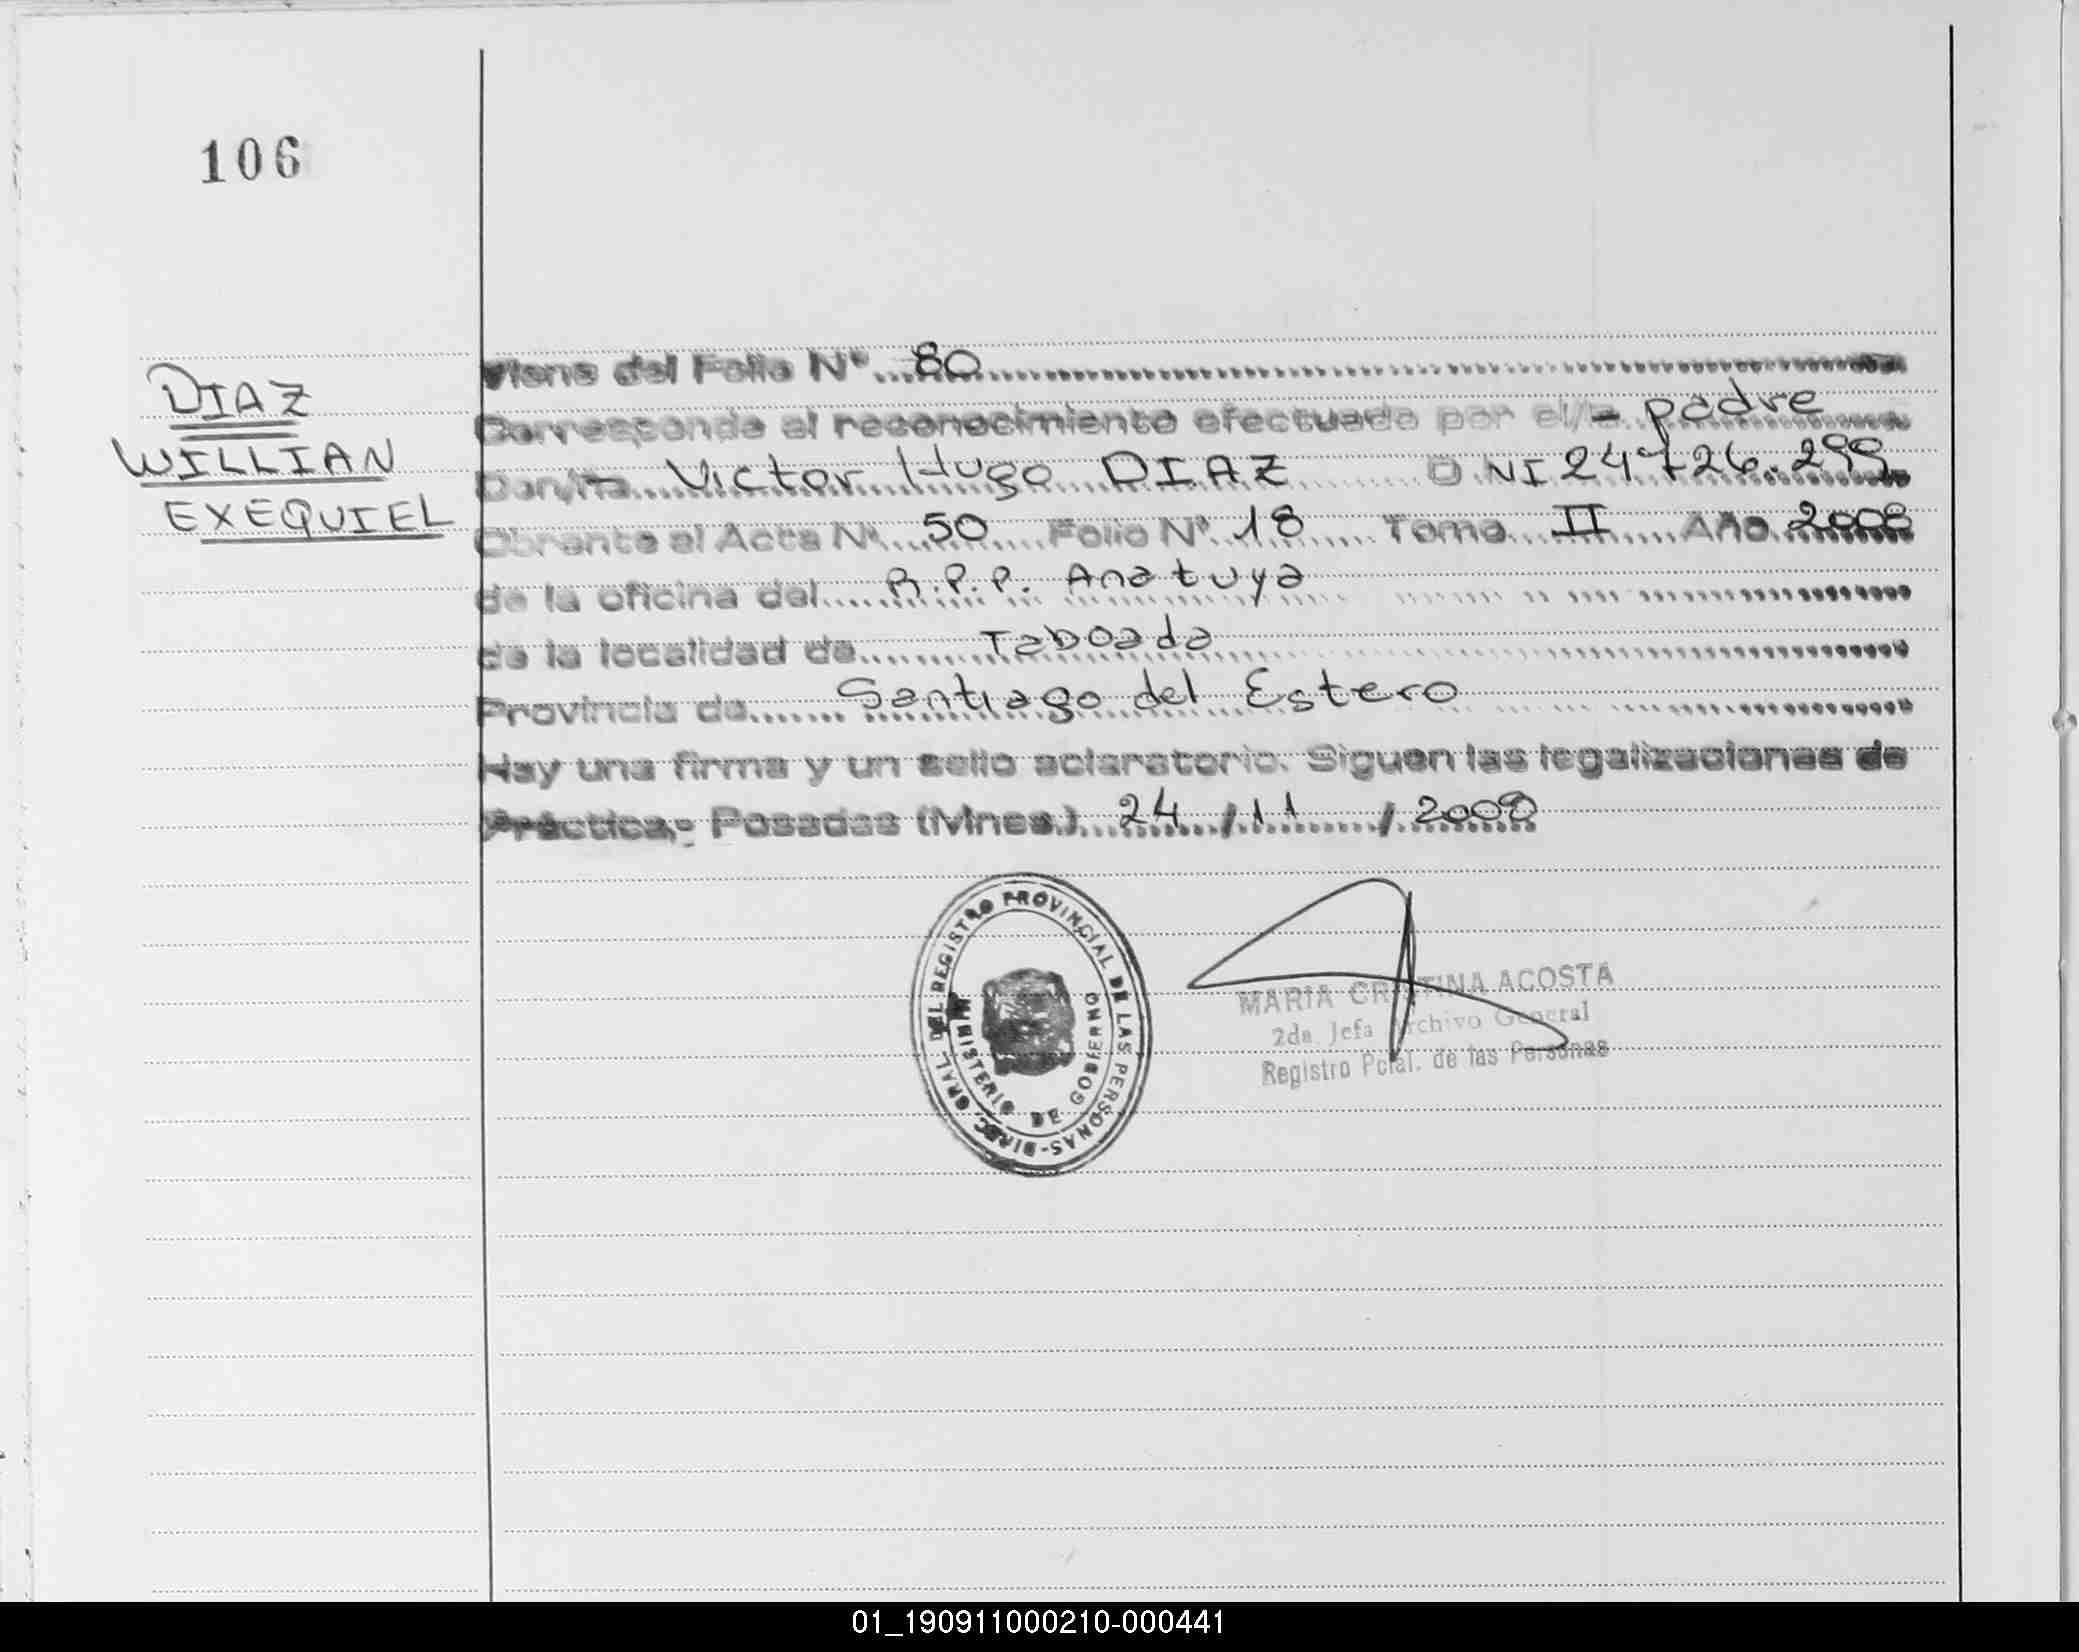 106
DIAZ
WILLIAN
EXEQUIEL
Viene del Folio Nº 80
Corresponde al reconocimiento efectuado por el/la padre
Don/ña Victor Hugo DIAZ D.NI 24726.299
Obrante al Acta Nº 50 Folio Nº 18 Tomo II Año 2008
de la oficina del R.P.P. Anatuya
de la localidad de Taboada
Provincia de Santiago del Estero
Hay una firma y un sello aclaratorio. Siguen las legalizaciones de
Práctica.- Posadas (Mnes.) 24/11/2008
DIREC. GRAL. DEL REGISTRO PROVINCIAL DE LAS PERSONAS-
MINISTERIO DE GOBIERNO
MARIA CRISTINA ACOSTA
2da. Jefa Archivo General
Registro Pcial. de las Personas
01_190911000210-000441